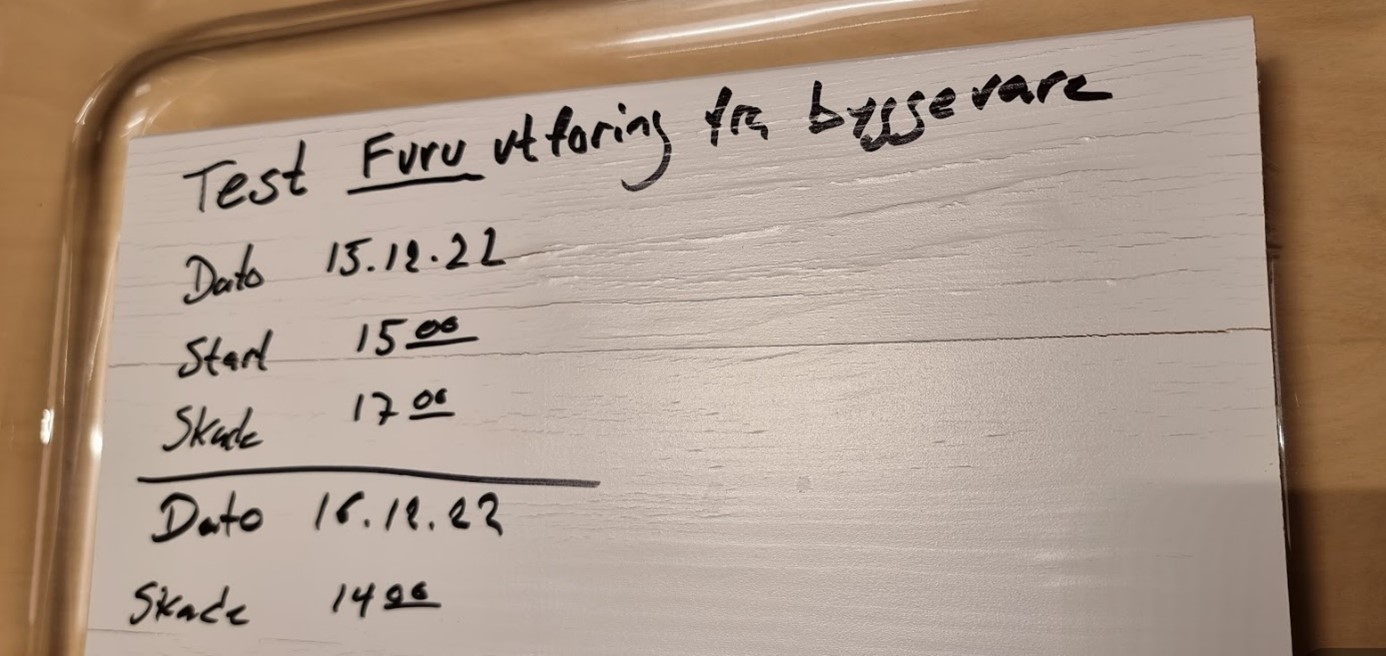 Test Furu utforing fra byggevare
Dato 15.12.22
Start 15 00
Skade 17 00
Dato 16.12.22
Skade 14 00